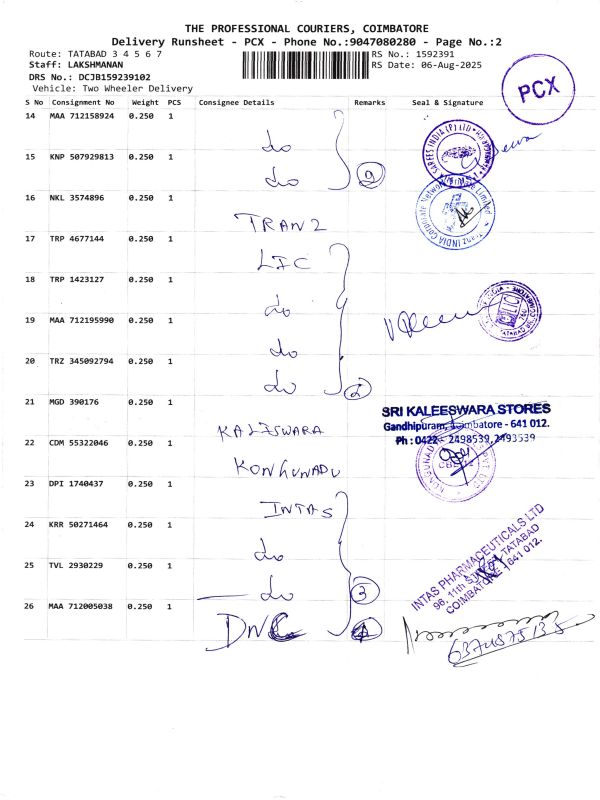 THE PROFESSIONAL COURIERS, COIMBATORE
Delivery Runsheet - PCX - Phone No.:9047080280 - Page No.:2
Route: TATABAD 3 4 5 6 7
RS No.: 1592391
Staff: LAKSHMANAN
RS Date: 06-Aug-2025
DRS No.: DCJB159239102
Vehicle: Two Wheeler Delivery
PCX
S No Consignment No Weight PCS Consignee Details Remarks Seal & Signature
14 MAA 712158924 0.250 1 do
15 KNP 507929813 0.250 1 do
16 NKL 3574896 0.250 1 TRANZ
17 TRP 4677144 0.250 1 LIC
18 TRP 1423127 0.250 1 do
19 MAA 712195990 0.250 1 do
20 TRZ 345092794 0.250 1 do
21 MGD 390176 0.250 1 KALISWARA
SRI KALEESWARA STORES
Gandhipuram, Coimbatore - 641 012.
Ph : 0422 - 2498539, 2493539
22 CDM 55322046 0.250 1 KONGUNADU
23 DPI 1740437 0.250 1 INTAS
24 KRR 50271464 0.250 1 do
25 TVL 2930229 0.250 1 do 3
INTAS PHARMACEUTICALS LTD
96, 11th STREET TATABAD
COIMBATORE 641 012.
26 MAA 712005038 0.250 1 DNC
6374875135